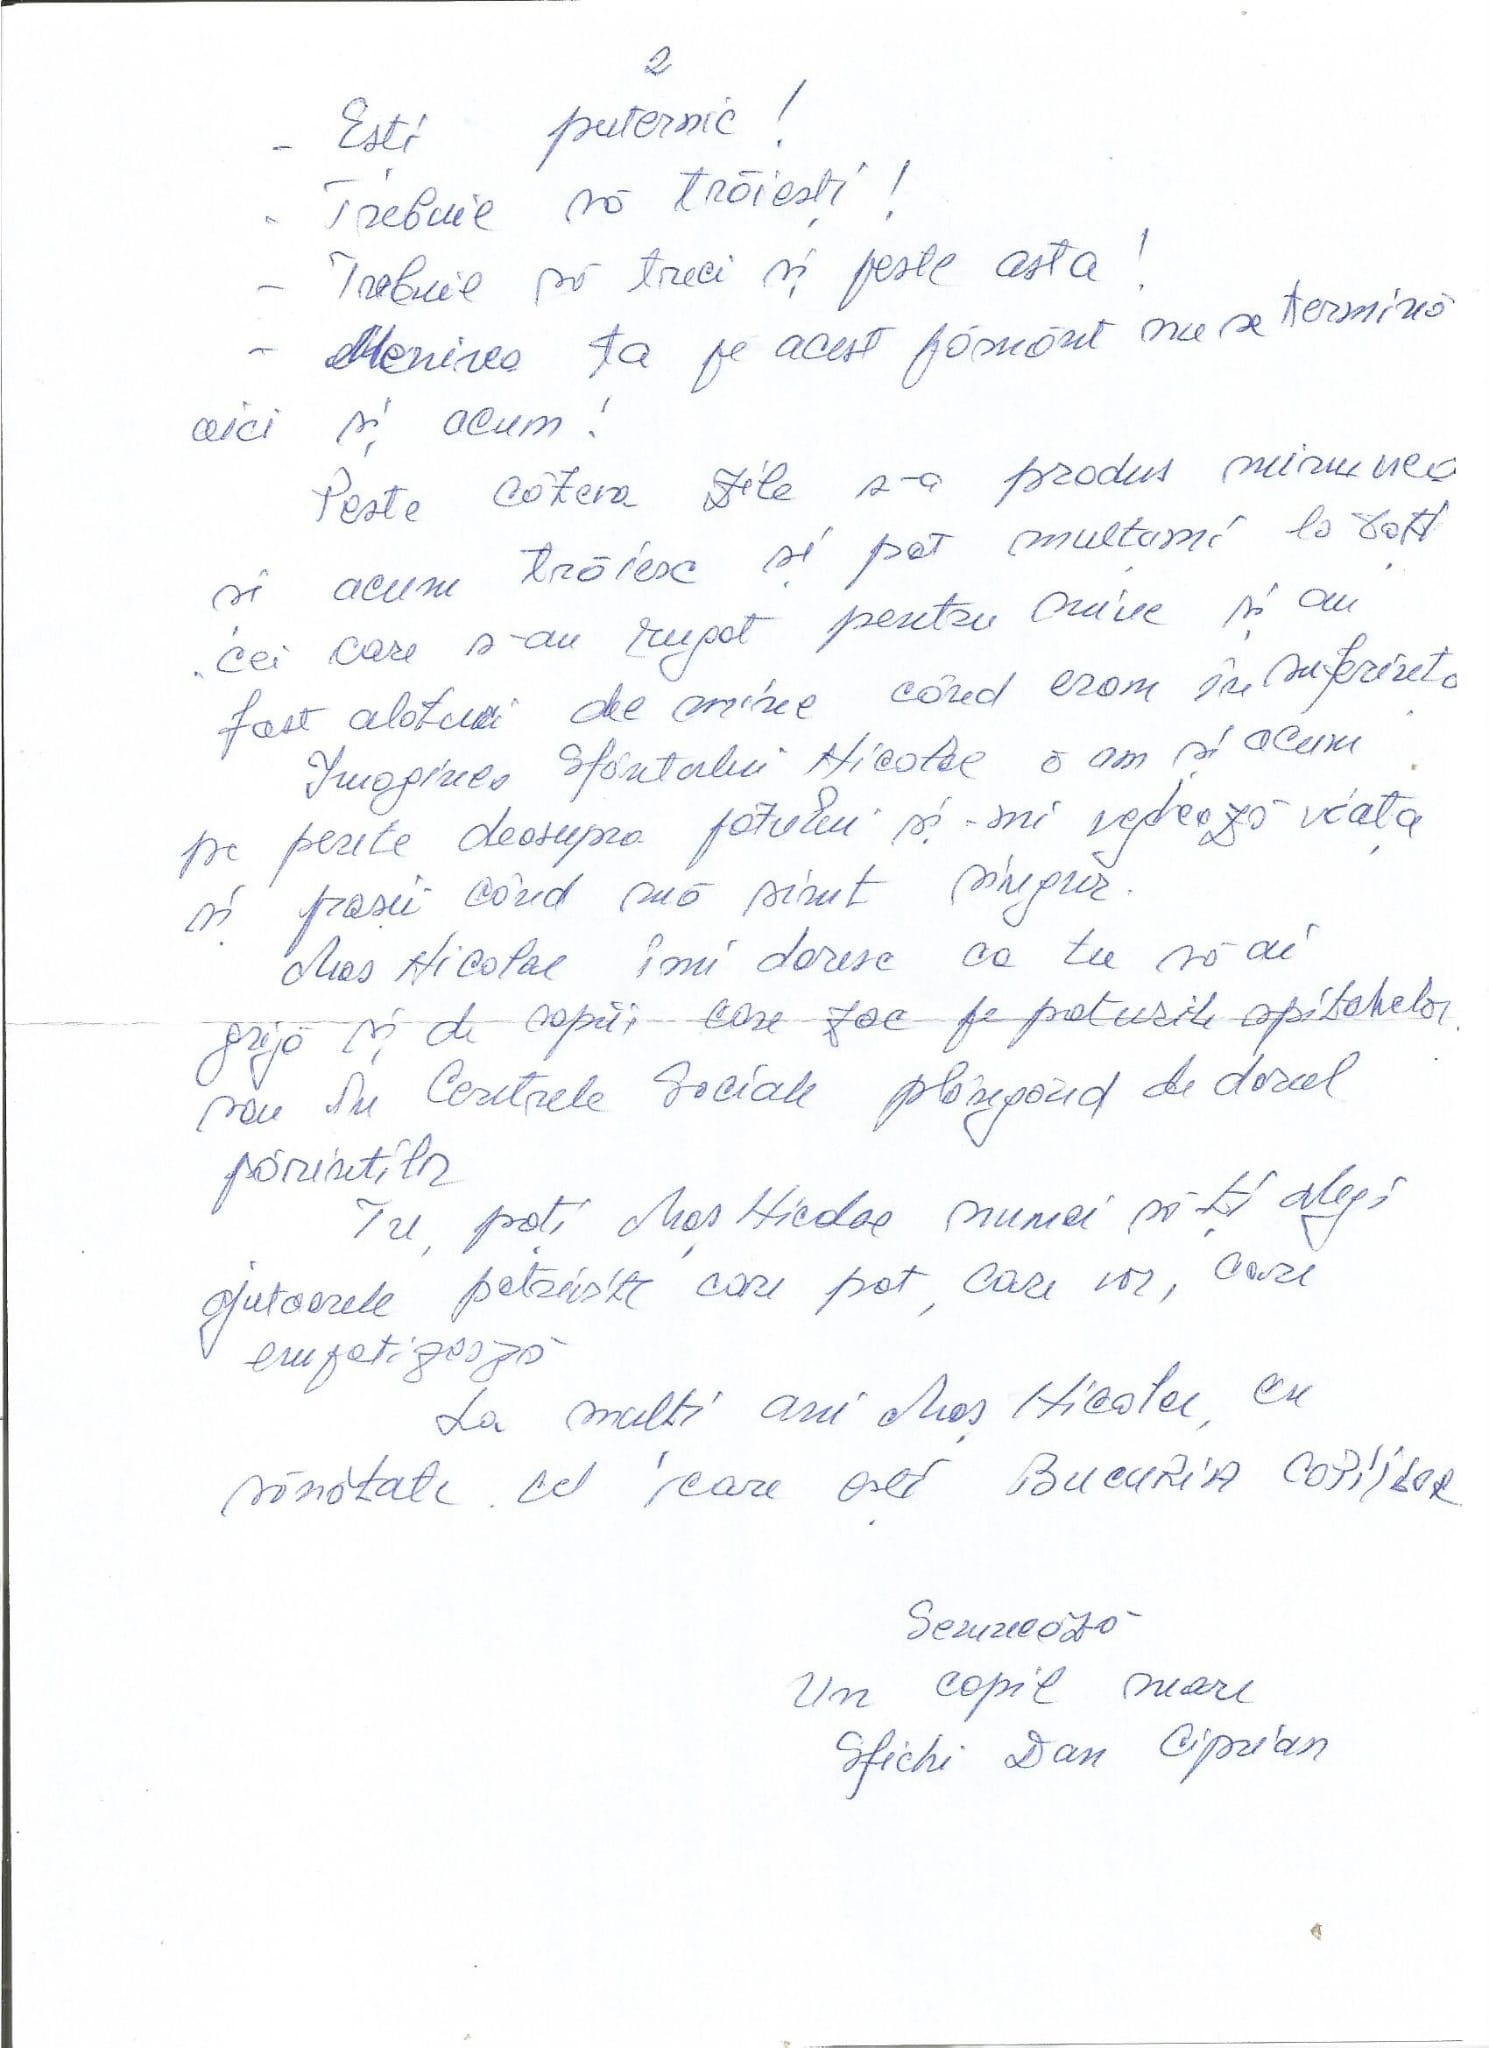 2
- Ești puternic!
- Trebuie să trăiești!
- Trebuie să treci și peste asta!
- Menirea ta pe acest pământ nu se termină
aici și acum!
Peste câteva zile s-a produs minunea
și acum trăiesc și pot mulțumi la toți
cei care s-au rugat pentru mine și au
fost alături de mine când eram în suferință
Imaginea Sfântului Nicolae o am și acum
pe perete deasupra patului și-mi veghează viața
și pașii când mă simt singur.
Moș Nicolae îmi doresc ca tu să ai
grijă și de copiii care zac pe paturile spitalelor
sau în Centrele Sociale plângând de dorul
părinților
Tu, poți Moș Nicolae numai să-ți alegi
ajutoarele potrivite care pot, care vor, care
empatizează
La mulți ani Moș Nicolae, cu
sănătate cel care ești BUCURIA COPIILOR
Semnează
Un copil mare
Sfichi Dan Ciprian